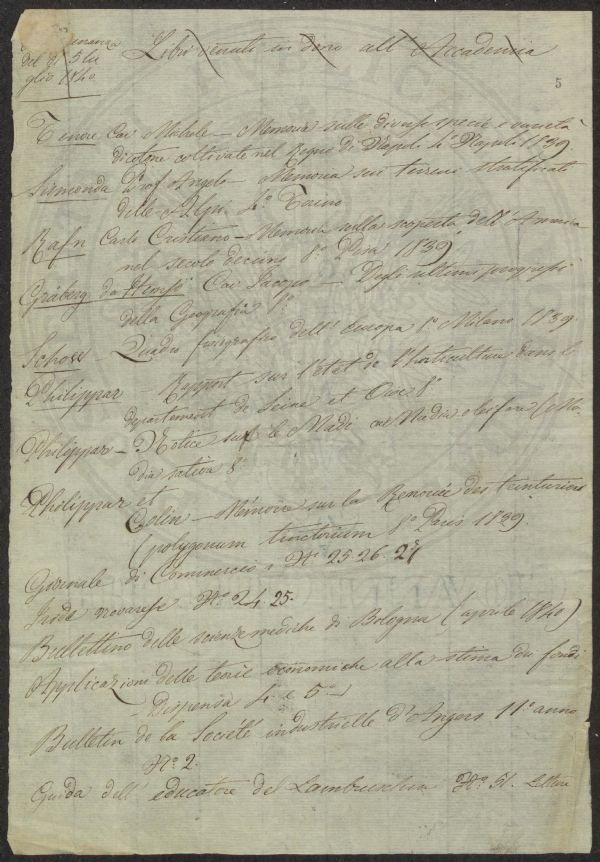 Adunanza
del dì 5 lu
glio 1840
Libri venuti in dono all' Accademia
5
Tenore Cav Michele – Memoria sulle diverse specie e varietà
di cotone coltivate nel Regno di Napoli 4° Napoli 1839
Sismonda Prof Angelo – Memoria sui terreni stratificati
delle Alpi 4° Torino
Rafn Carlo Cristiano – Memoria sulla scoperta dell' America
nel secolo decimo 8° Pisa 1839
Gräberg da Hemsö Cav Jacopo – Degli ultimi progressi
della Geografia 8°
Schow – Quadro fisiografico dell' Europa 8° Milano 1839
Philippar Rapport sur l'etat de l'horticulture dans le
departement de Seine et Oise 8°
Philippar – Notice sur le Madi ou Madia oleifère (Ma
dia sativa 8°
Philippar et
Colin – Mémoire sur la Renouée des teinturiers
(polygonum tinctorium 8° Paris 1839.
Giornale di Commercio N° 25. 26. 27
Iride novarese N° 24 25.
Bullettino delle scienze mediche di Bologna (aprile 1840)
Applicazioni delle teorie economiche alla stima dei fondi
– Dispensa 4. e 5.
Bulletin de la Société industrielle d'Angers 11° anno
N° 2.
Guida dell' educatore del Lambruschini N° 51. Letture